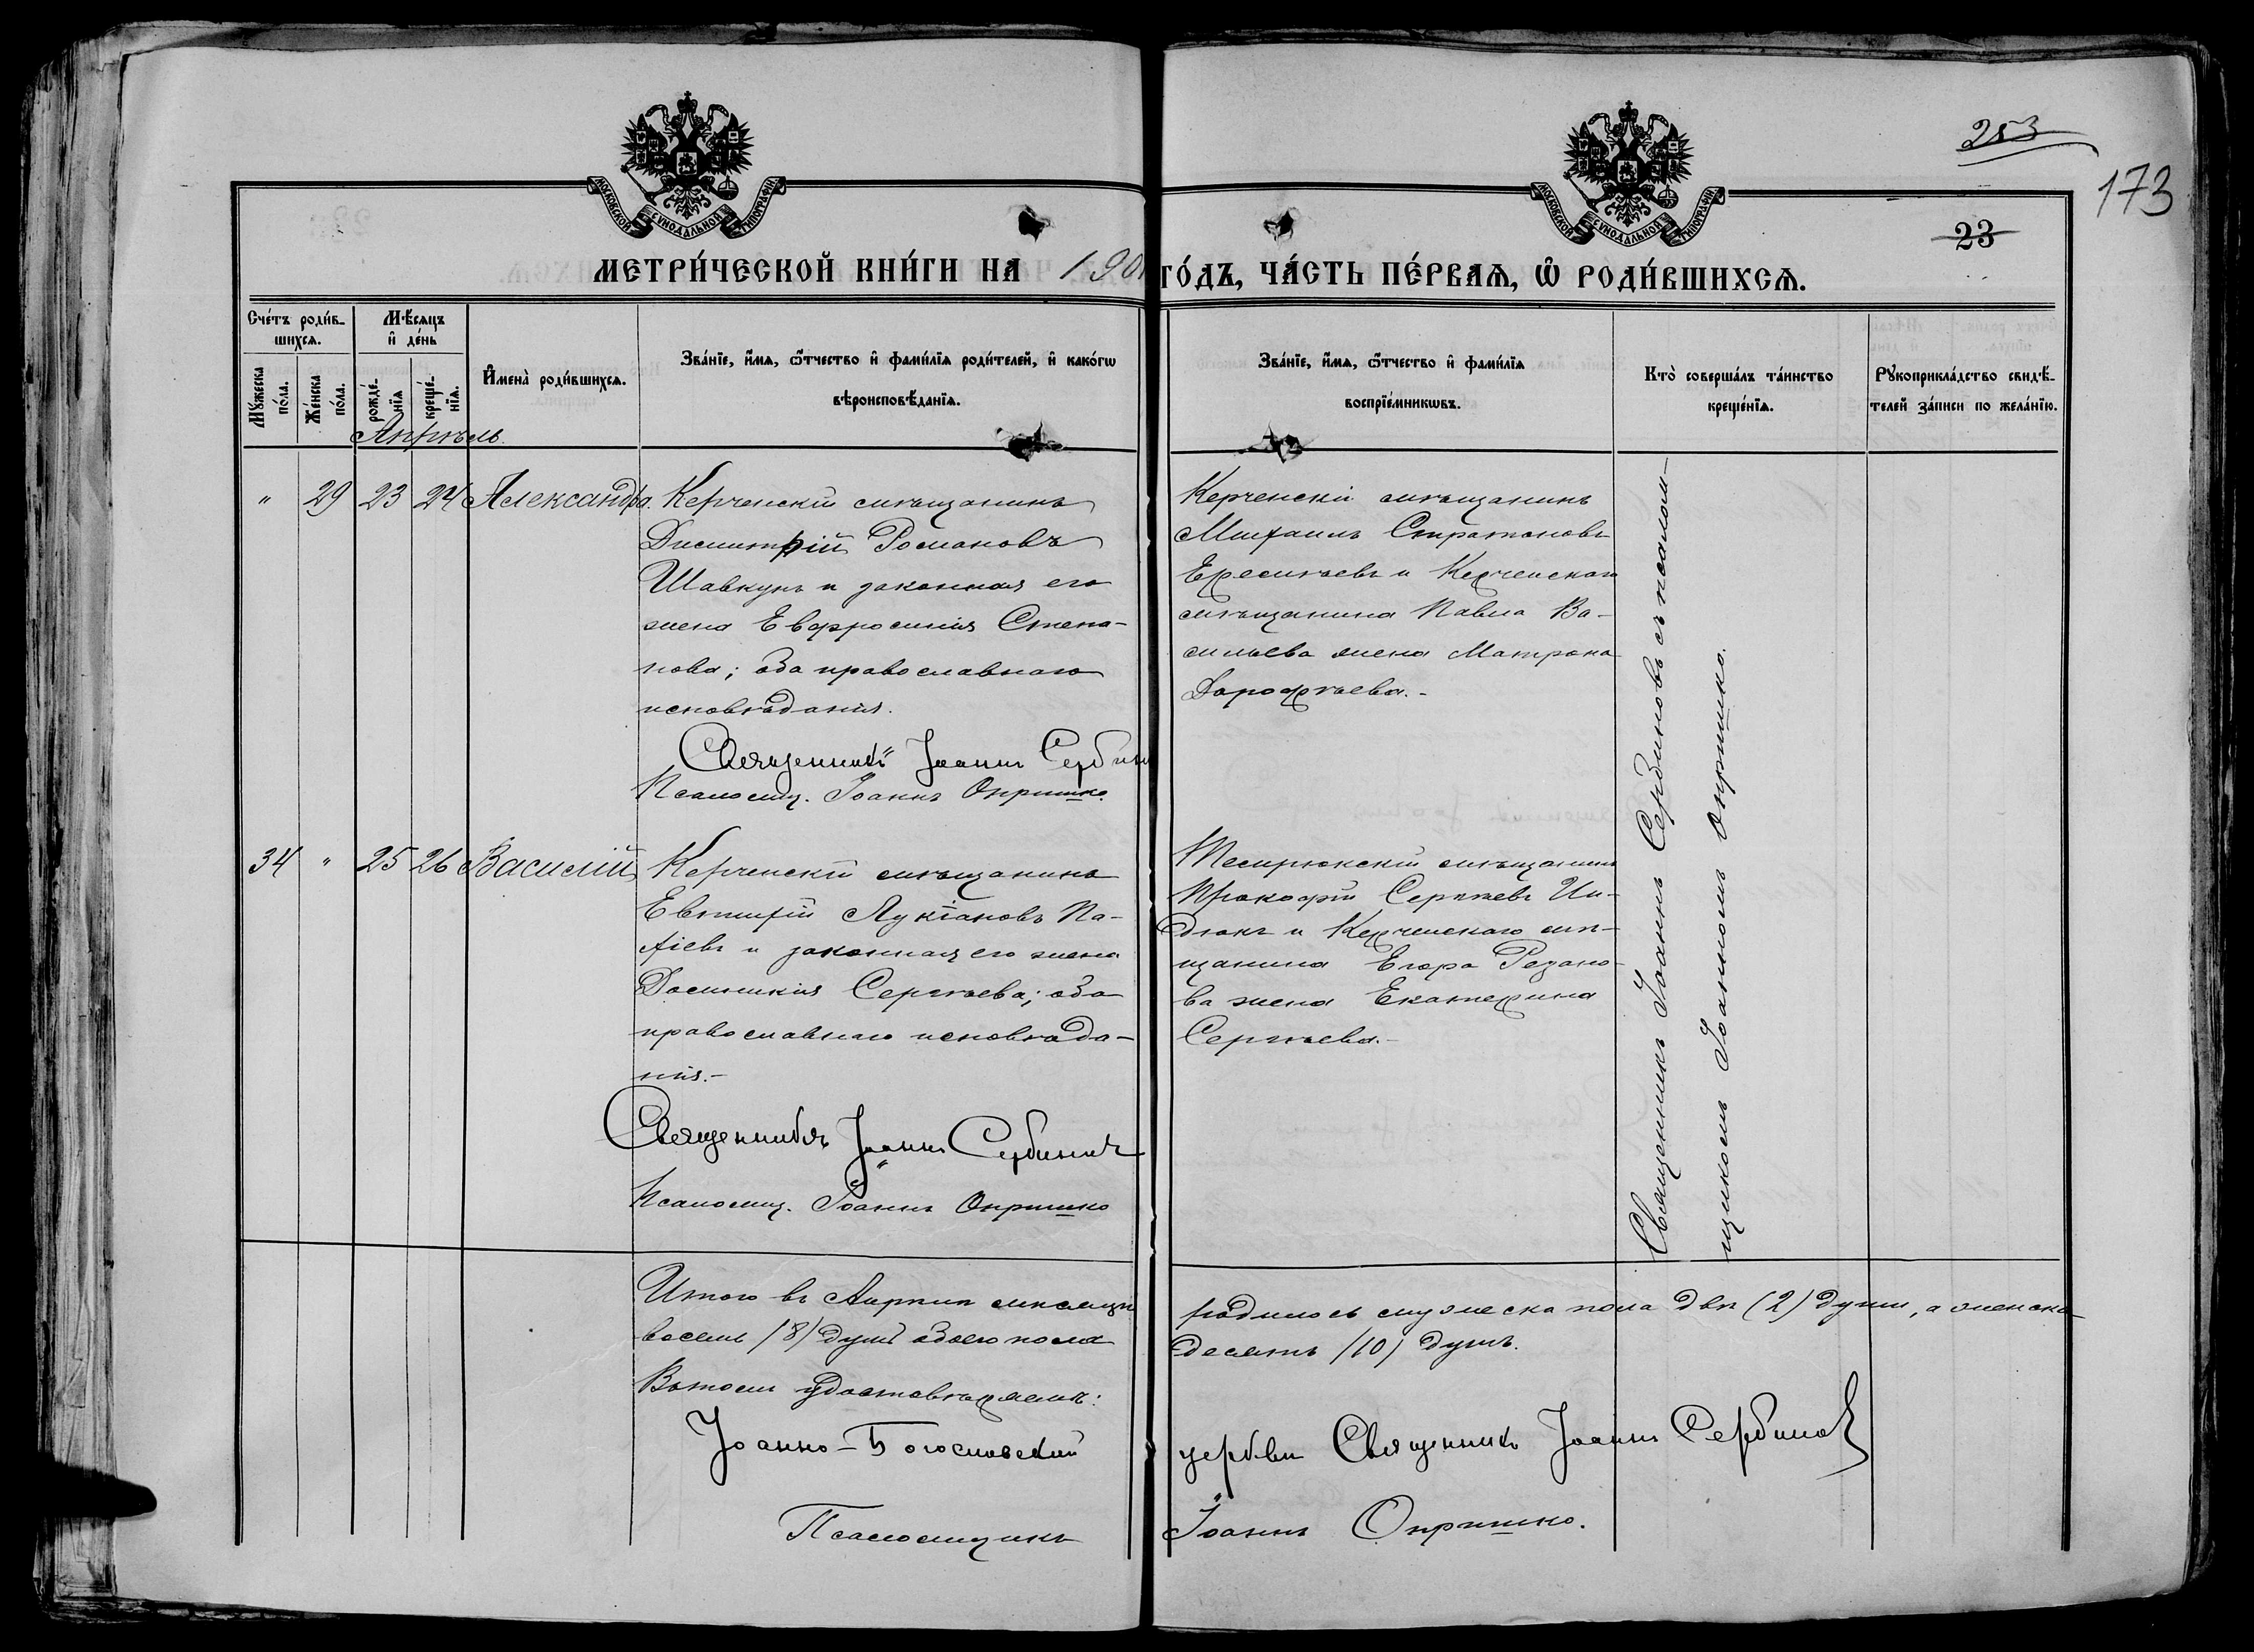 253
173
МОСКОВСКОЙ СУНОДАЛЬНОЙ ТИПОГРАФІИ
МОСКОВСКОЙ СУНОДАЛЬНОЙ ТИПОГРАФІИ
23
МЕТРИ́ЧЕСКОЙ КНИ́ГИ НА 190
ГО́ДЪ, ЧА́СТЬ ПЕ́РВАѦ, Ѡ҆ РОДИ́ВШИХСѦ.
Сче́тъ роди́в-
шихсѧ.
Мꙋ́жеска по́ла.
Же́нска по́ла.
Мѣ́сѧцъ
и҆ де́нь
рожде́-
нїѧ
креще́-
нїѧ.
И҆мена̀ роди́вшихсѧ.
Зва́нїе, и҆́мѧ, ѻ҆́тчество и҆ фами́лїѧ роди́телей, и҆ како́гѡ
вѣроисповѣ́данїѧ.
Зва́нїе, и҆́мѧ, ѻ҆́тчество и҆ фами́лїѧ
воспрїе́мникѡвъ.
Кто̀ соверша́лъ та́инство
креще́нїѧ.
Рꙋкоприкла́дство свидѣ́-
телей за́писи по жела́нїю.
Апрѣль.
" 29 23 24 Александра.
Керченскій мѣщанинъ
Димитрій Романовъ
Шавкунъ и законная его
жена Евфросинія Степа-
нова; оба православнаго
исповѣданія.
Священникъ Іоаннъ Сербин
Псаломщ. Іоаннъ Опришко.
Керченскій мѣщанинъ
Михаилъ Стратоновъ
Ересилаевъ и Керченскаго
мѣщанина Павла Ва-
сильева жена Матрона
Дорофѣева.-
34 " 25 26 Василій
Керченскій мѣщанинъ
Евтихій Лукіановъ Па-
хіевъ и законная его жена
Домникія Сергѣева; оба
православнаго исповѣда-
нія.-
Священникъ Іоаннъ Сербиновъ
Псаломщ. Іоаннъ Опришко
Темрюкскій мѣщанинъ
Прокофій Сергѣевъ Ин-
дюкъ и Керченскаго мѣ-
щанина Егора Резано-
ва жена Екатерина
Сергѣева.-
Священникъ Іоаннъ Сербиновъ съ псалом-
щикомъ Іоанномъ Опришко.
Итого въ Апрѣлѣ мѣсяцѣ родилось мужеска пола двѣ (2) души, а женска
восемь (8) душъ обоего пола десять (10) душъ.
Въ томъ удостовѣряемъ:
Іоанно-Богословской церкви Священникъ Іоаннъ Сербиновъ
Псаломщикъ Іоаннъ Опришко.